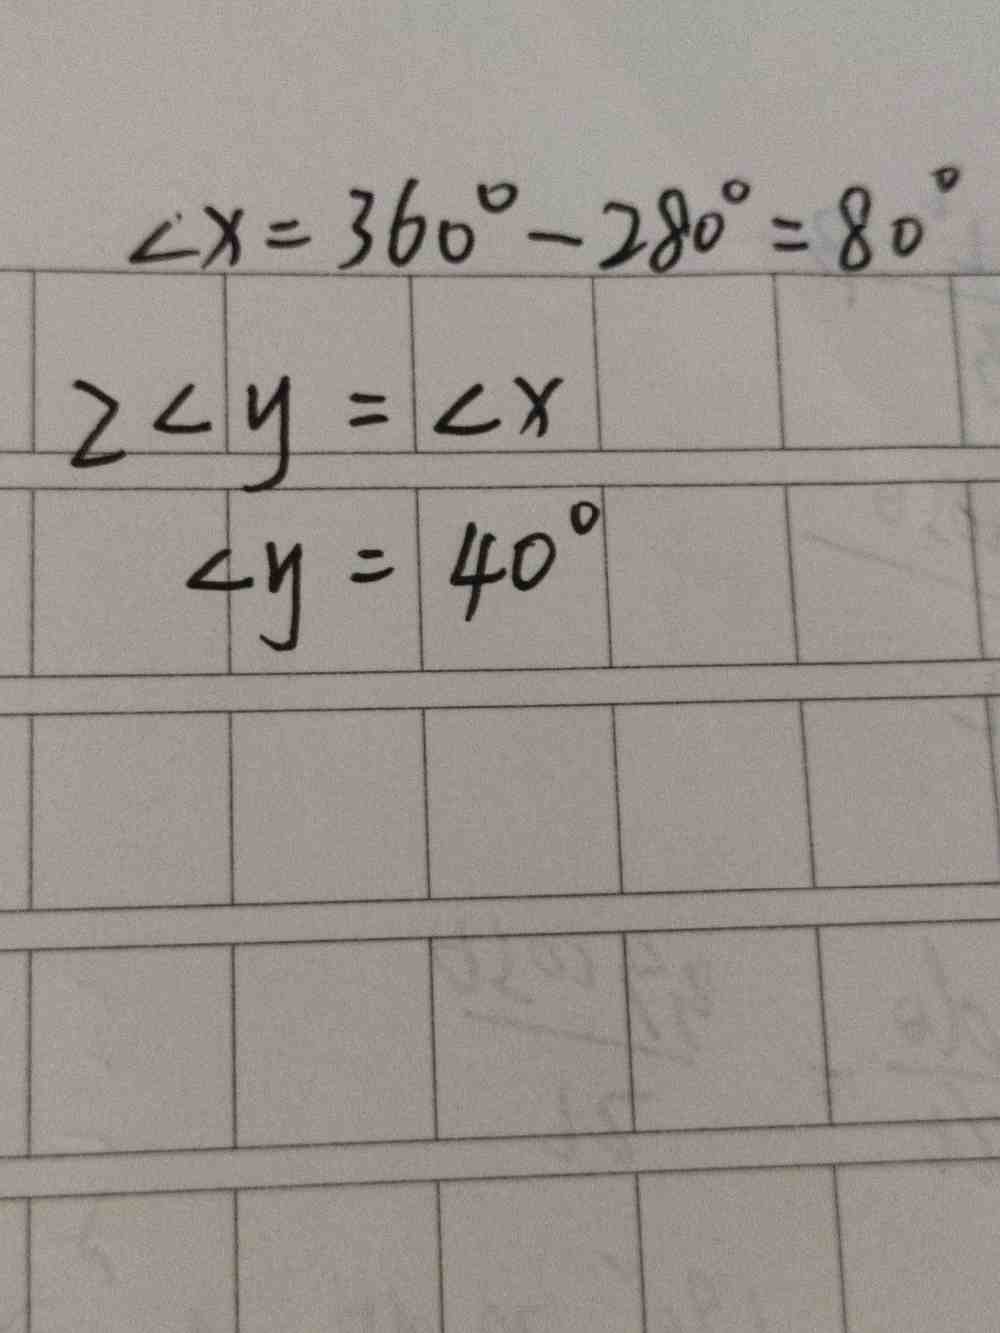 ∠x = 360° - 280° = 80°
2∠y = ∠x
∠y = 40°